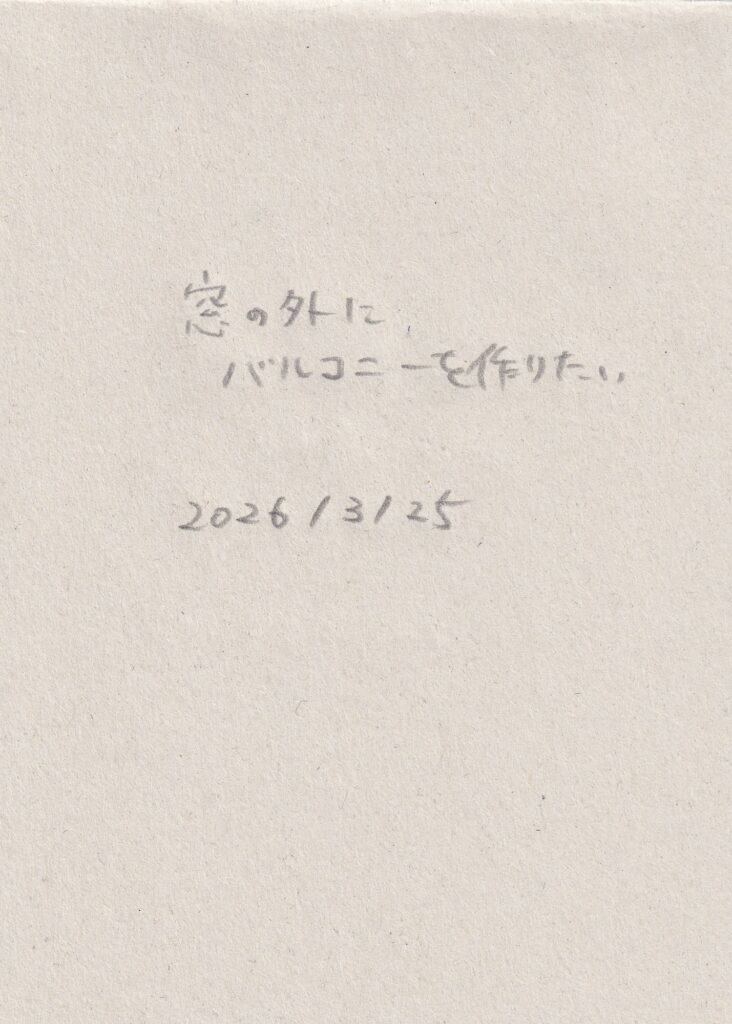 窓の外に
バルコニーを作りたい
2026/3/25